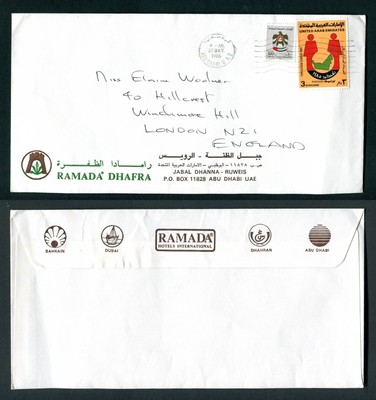 الإمارات العربية المتحدة
UNITED ARAB EMIRATES
3
٣
Miss Elaine Woolner
40 Hillcrest
Winchmore Hill
LONDON N21
ENGLAND
رامادا الظفرة
RAMADA DHAFRA
جبل الظنة - الرويس
ص.ب ١١٨٢٨ - أبوظبي - الامارات العربية المتحدة
JABAL DHANNA - RUWEIS
P.O. BOX 11828 ABU DHABI UAE
BAHRAIN
DUBAI
RAMADA
HOTELS INTERNATIONAL
DHAHRAN
ABU DHABI